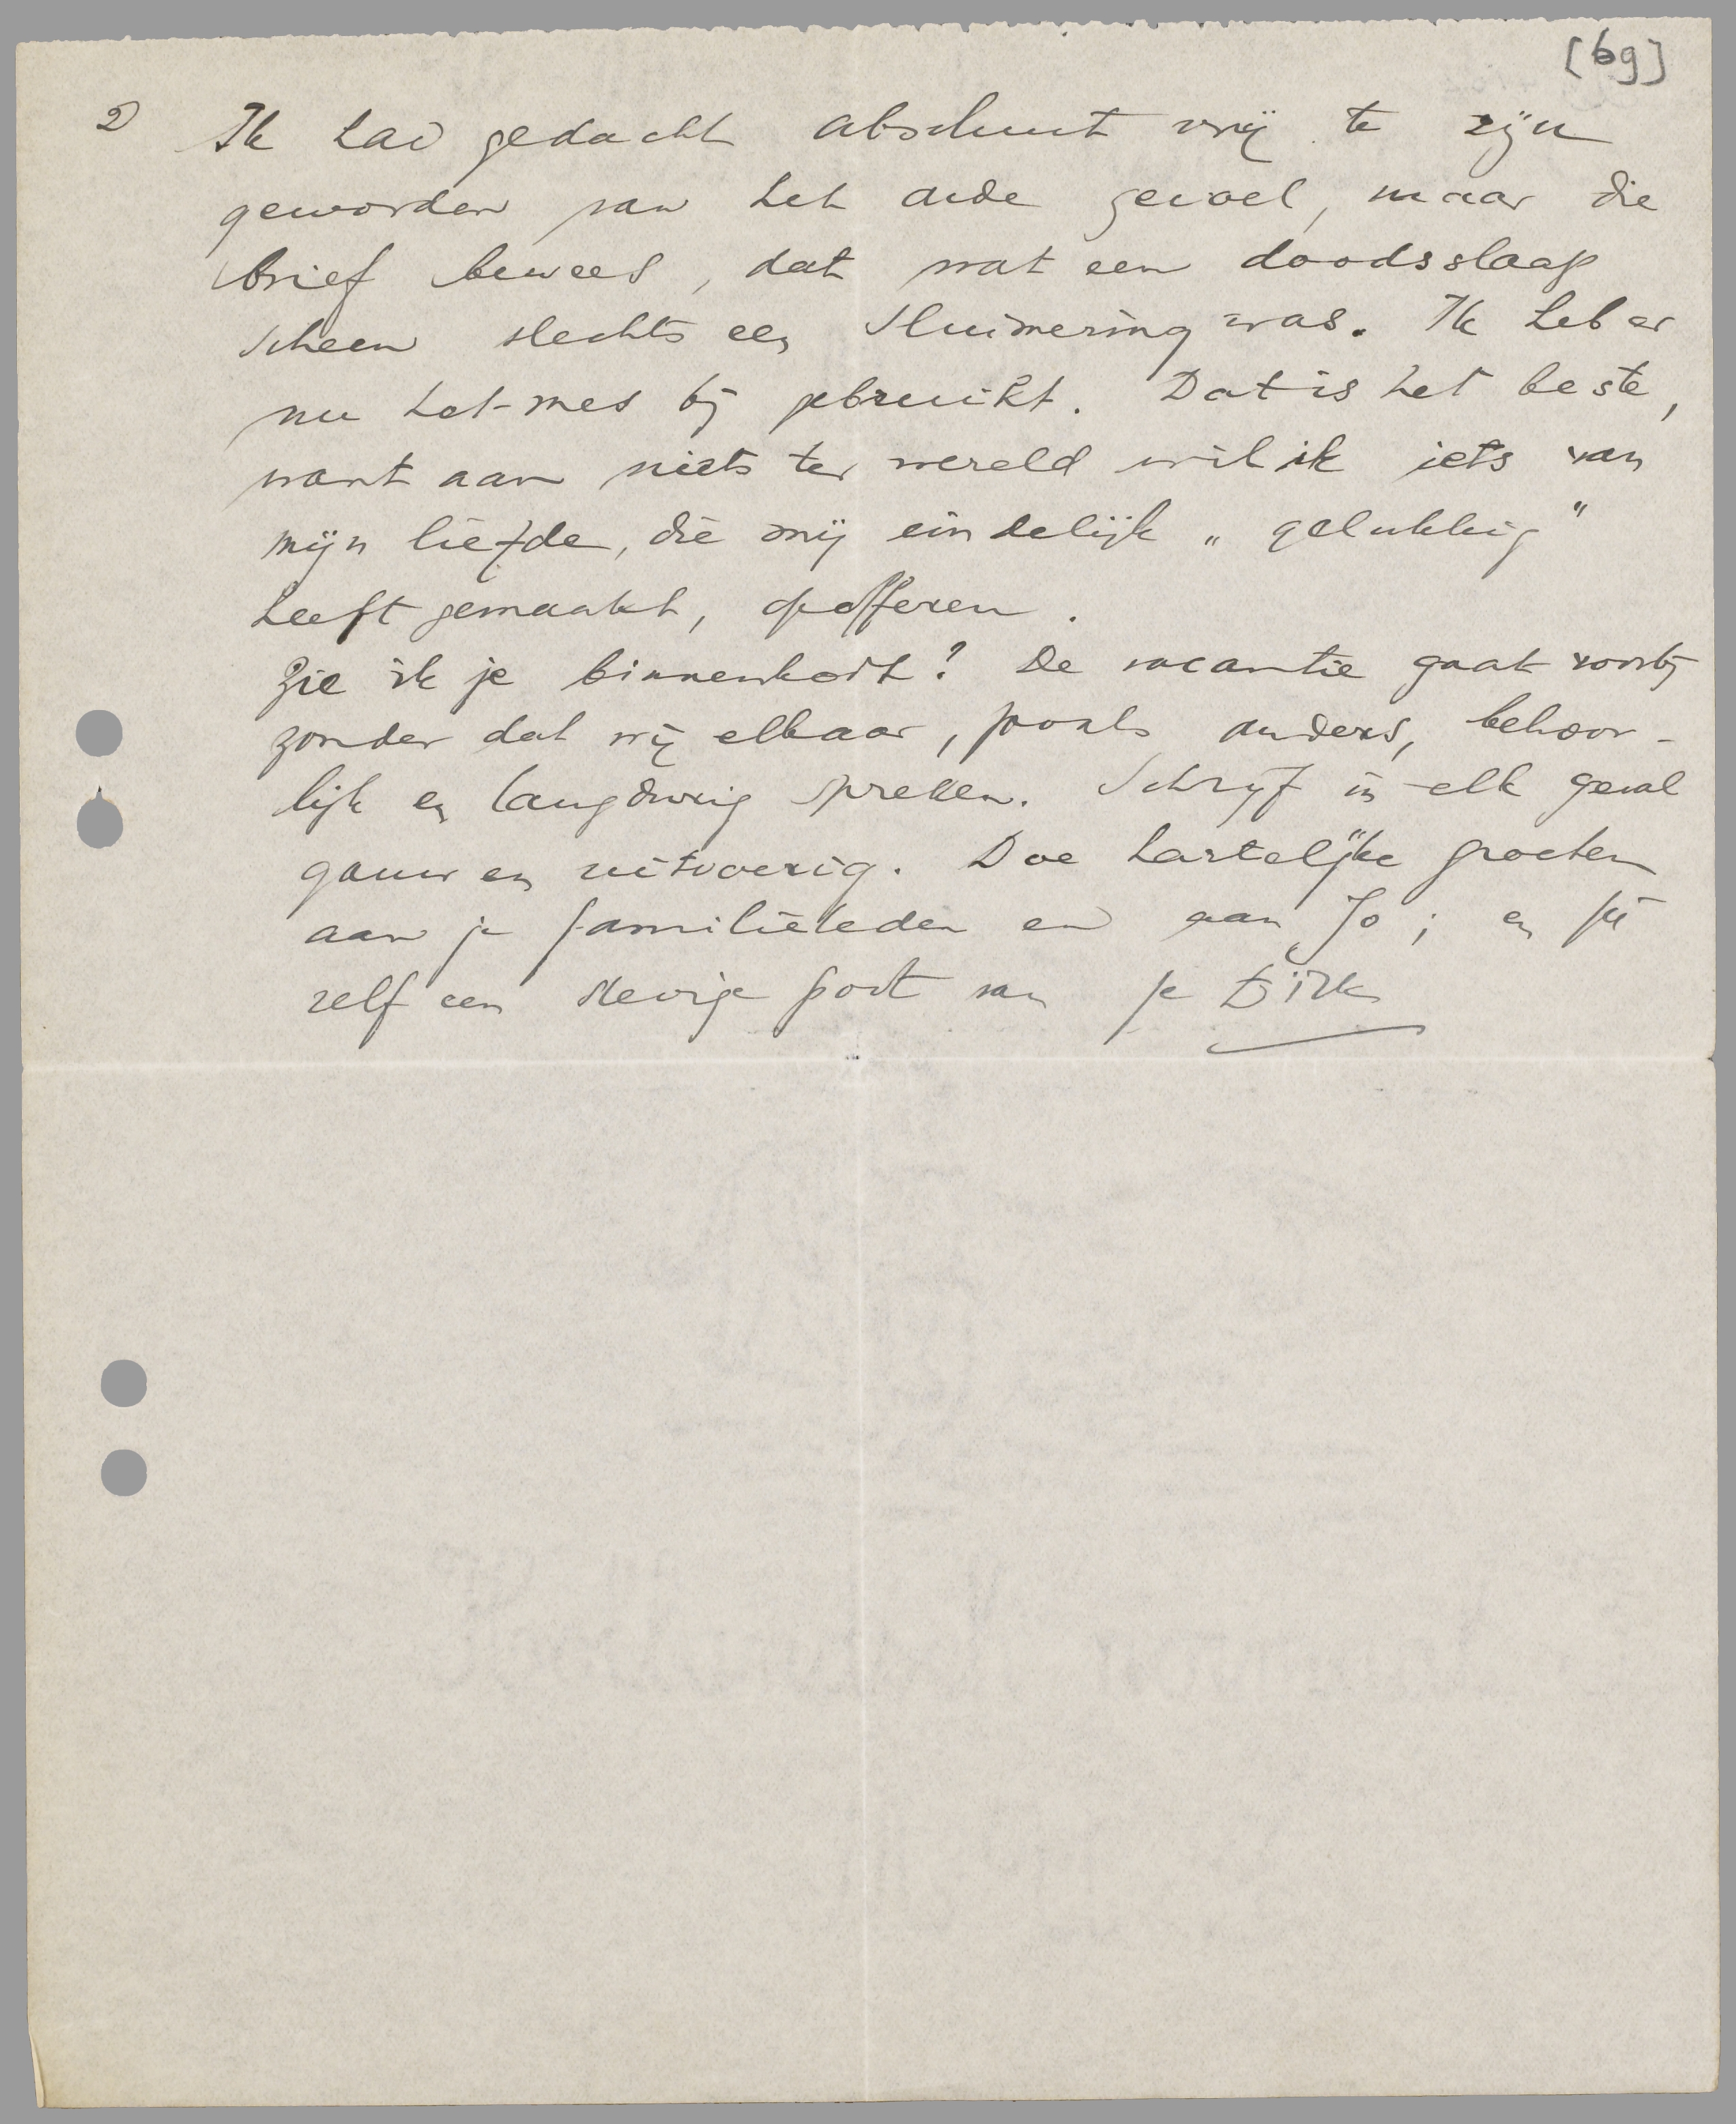 [69]
2 Ik had gedacht absoluut vrij te zijn
geworden van het oude gevoel, maar die
brief bewees, dat wat een doodsslaap
scheen slechts een sluimering was. Ik heb er
nu het mes bij gebruikt. Dat is het beste,
want aan niets ter wereld wil ik iets van
mijn liefde, die mij eindelijk „gelukkig"
heeft gemaakt, opofferen.
Zie ik je binnenkort? De vacantie gaat voorbij
zonder dat wij elkaar, zooals anders, behoor-
lijk en langdurig spreken. Schrijf in elk geval
gauw en uitvoerig. Doe hartelijke groeten
aan je familieleden en aan Jo; en jij
zelf een stevige poot van je Dirk